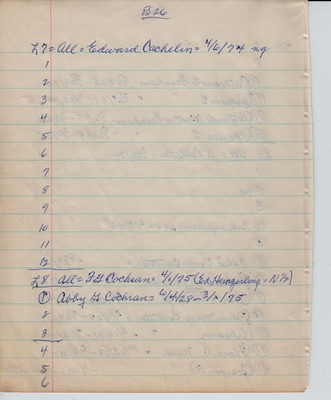 B26
L7 = All = Edward Oechelin = 4/6/74 ng
1
2
3
4
5
6
7
8
9
10
11
12
L8 All = F G Cochran = 4/1/75 (Ed Hemperling - N/S)
① Abby G Cochran = 6/4/28 - 3/ /75
2
3
4
5
6